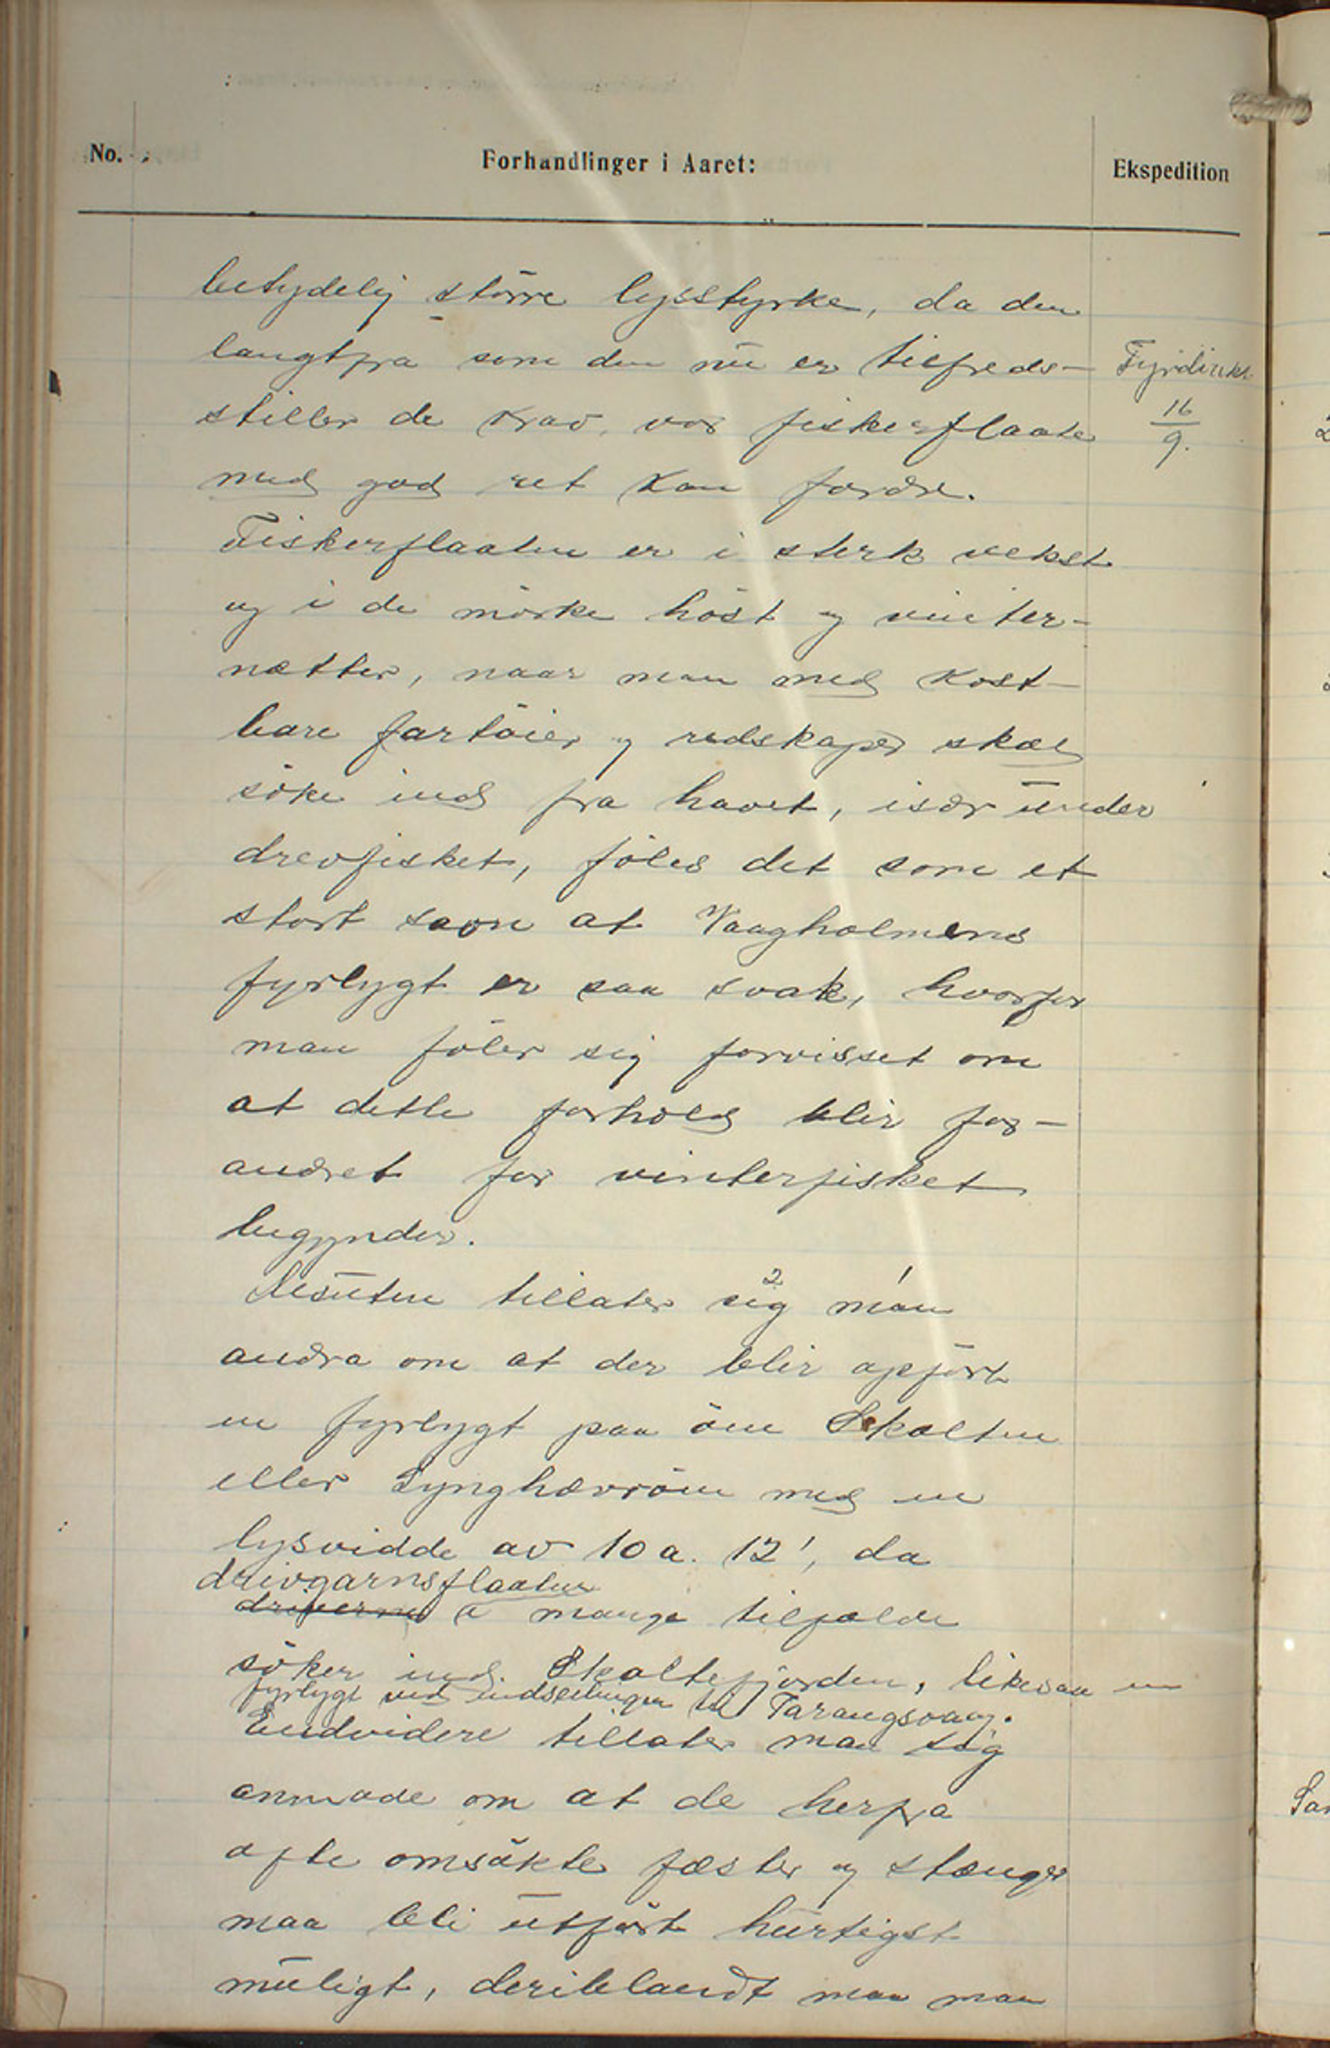 No.
Forhandlinger i Aaret:
Ekspedition
betydelig större lysstyrke, da den
langtfra som den nu er tilfreds-
stiller de krav, vor fiskerflaate
med god ret kan fordre.
Fyrdirekt
16
9.
Fiskerflaaten er i sterk vekst
og i de mörke höst og vinter-
nætter, naar man med kost-
bare fartöier og redskaper skal
söke ind fra havet, især under
drevfisket, föles det som et
stort savn at Vaagholmens
fyrlygt er saa svak, hvorfor
man föler sig forvisset om
at dette forhold blir for-
andret för vinterfisket
begynder.
Desuten tillater sig 2 man 1
andra om at der blir opfört
en fyrlygt paa öen Skalten
eller Lynghavröen med en
lysvidde av 10 a. 12', da
drivgarnsflaaten
driverne i mange tilfælde
söker ind Skaltefjorden, likesaa en
fyrlygt ved indseilingen til Tarangsvaag.
Endvidere tillater man sig
anmode om at de herfra
ofte omsökte fæster og stænger
maa bli utfört hurtigst
muligt, deriblandt maa man